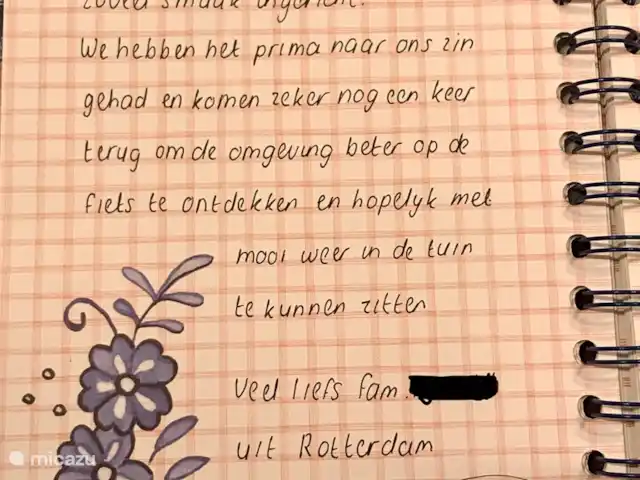 zoveel smaak ingericht.
We hebben het prima naar ons zin
gehad en komen zeker nog een keer
terug om de omgeving beter op de
fiets te ontdekken en hopelyk met
mooi weer in de tuin
te kunnen zitten
Veel liefs fam.
uit Rotterdam
micazu